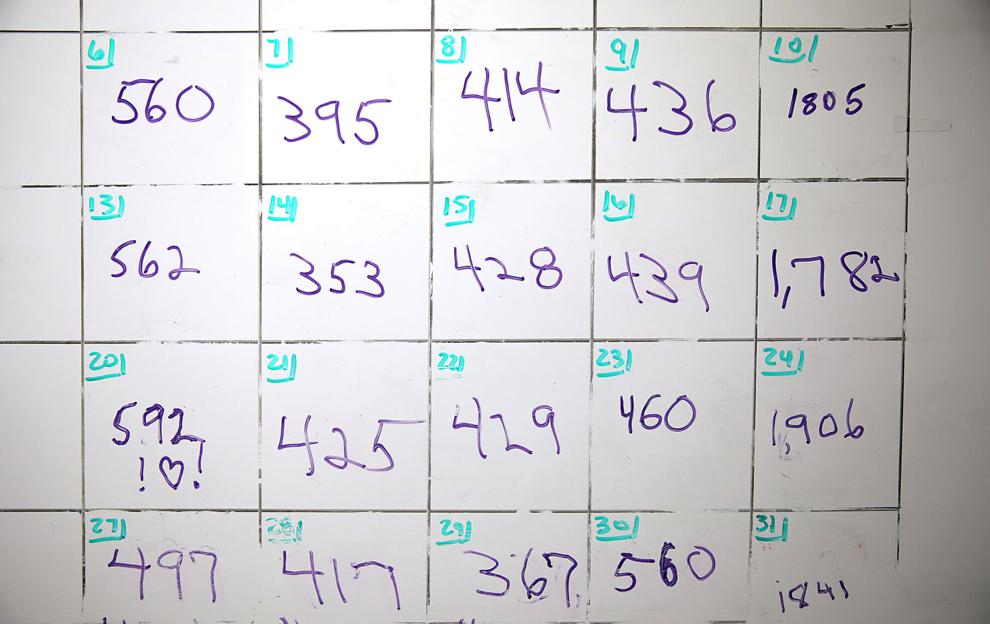 6 7 8 9 10
560 395 414 436 1805
13 14 15 16 17
562 353 428 439 1,782
20 21 22 23 24
592 425 429 460 1,906
!♡!
27 28 29 30 31
497 417 367 560 1841